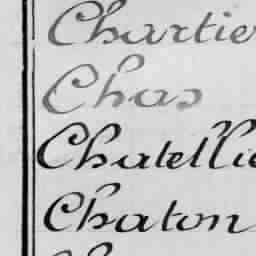 Chartie
Chas
Chatellie
Chaton